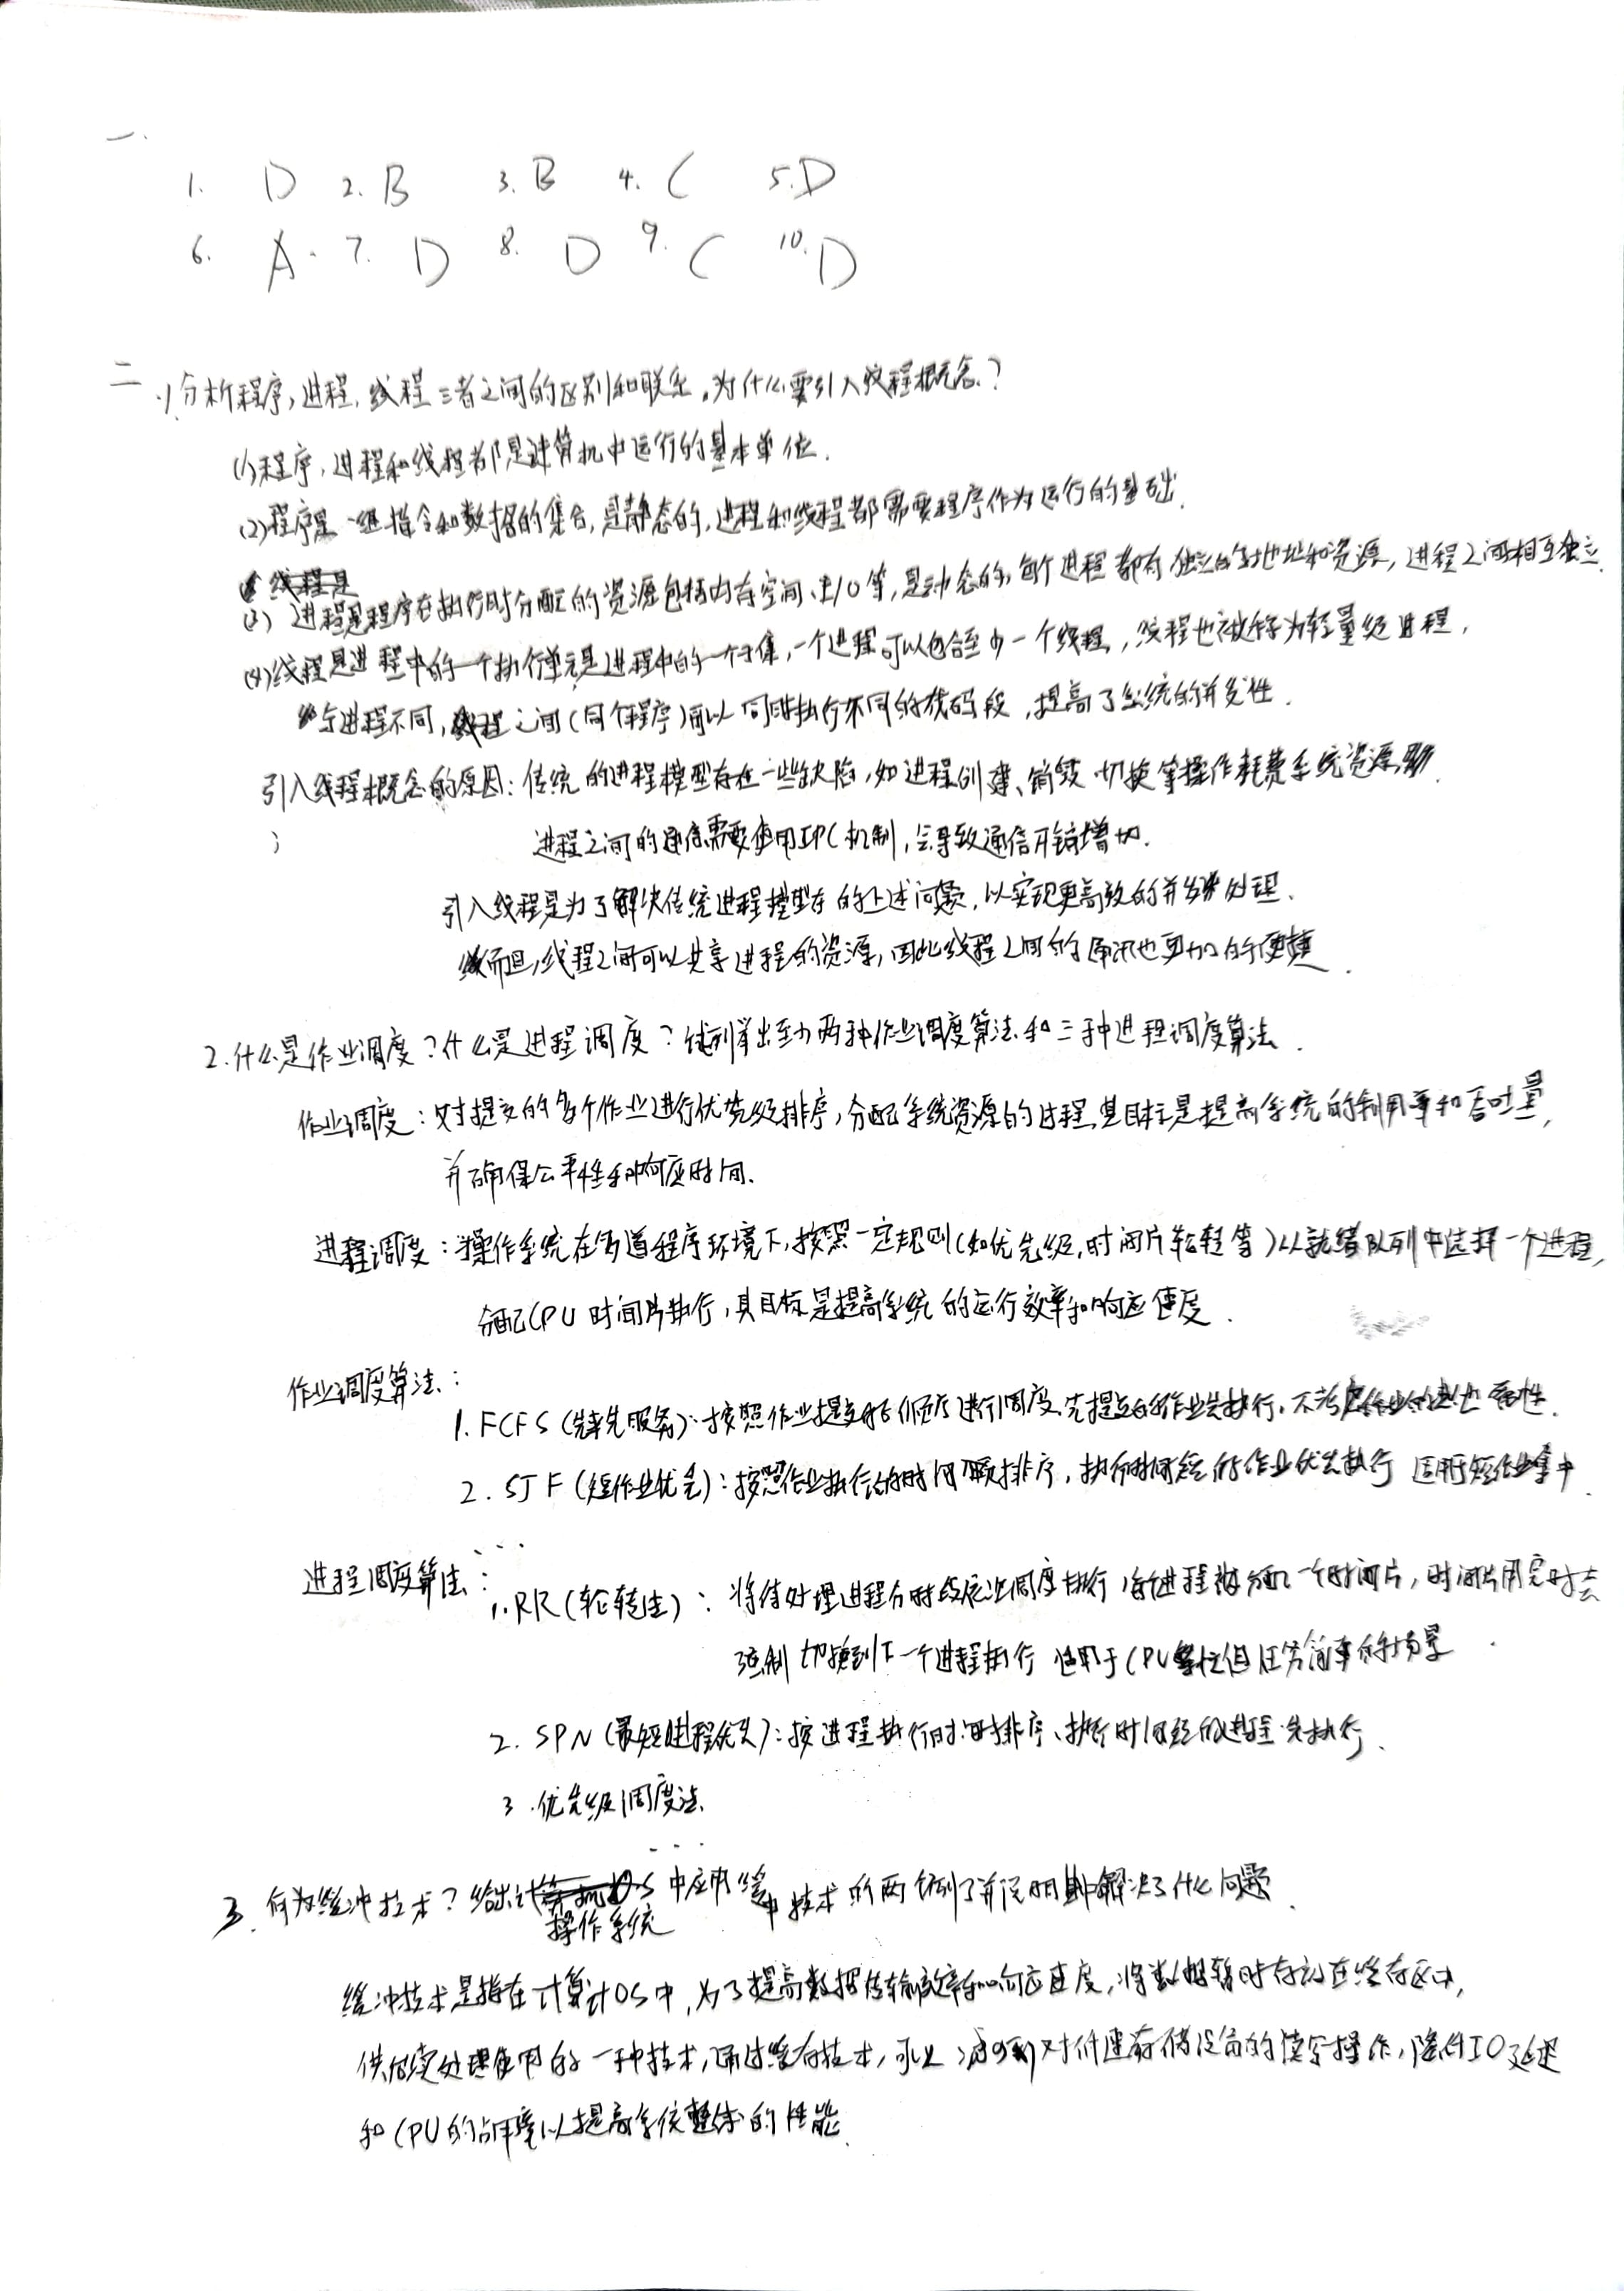 一.
1. D 2. B 3. B 4. C 5. D
6. A. 7. D 8. D 9. C 10. D
二 1.分析程序,进程,线程三者之间的区别和联系。为什么要引入线程概念?
(1)程序,进程和线程都是计算机中运行的基本单位.
(2)程序是一组指令和数据的集合,是静态的,进程和线程都需要程序作为运行的基础.
线程是
(3) 进程是程序在执行时分配的资源包括内存空间、I/O等,是动态的,每个进程都有独立的地址和资源,进程之间相互独立.
(4)线程是进程中的一个执行单元是进程中的一个子集,一个进程可以包含至少一个线程,线程也被称为轻量级进程,
与进程不同,线程之间(同个程序)可以同时执行不同的代码段,提高了系统的并发性.
引入线程概念的原因:传统的进程模型存在一些缺陷,如进程创建、销毁、切换等操作耗费系统资源,
进程之间的通信需要使用IPC机制,会导致通信开销增加.
引入线程是为了解决传统进程模型存的上述问题,以实现更高效的并发处理.
而且,线程之间可以共享进程的资源,因此线程之间的通讯也更加的便捷.
2.什么是作业调度?什么是进程调度?试列举出至少两种作业调度算法和三种进程调度算法.
作业调度:对提交的多个作业进行优先级排序,分配系统资源的过程,其目标是提高系统的利用率和吞吐量,
并确保公平性和响应时间.
进程调度:操作系统在多道程序环境下,按照一定规则(如优先级,时间片轮转等)从就绪队列中选择一个进程,
分配CPU时间片执行,其目标是提高系统的运行效率和响应速度.
作业调度算法:
1. FCFS (先来先服务):按照作业提交的顺序进行调度,先提交的作业先执行,不考虑作业的其他属性.
2. SJF (短作业优先):按照作业执行的时间顺序排序,执行时间短的作业优先执行 适用于短作业集中.
...
进程调度算法:
1. RR (轮转法): 将待处理进程分时段依次调度执行,每个进程被分配一个时间片,时间片用完时会
强制切换到下一个进程执行 适用于CPU 但任务简单的场景.
2. SPN (最短进程优先):按进程执行时间排序,执行时间短的进程先执行.
3.优先级调度法.
...
3.何为缓冲技术?给出计算机OS中应用缓冲技术的两个例子并说明其解决了什么问题.
操作系统
缓冲技术是指在计算计OS中,为了提高数据传输效率和响应速度,将数据暂时存放在缓存区中,
供后续处理使用的一种技术,通过缓存技术,可以减少对低速存储设备的读写操作,降低IO延迟
和CPU的占用率以提高系统整体的性能.